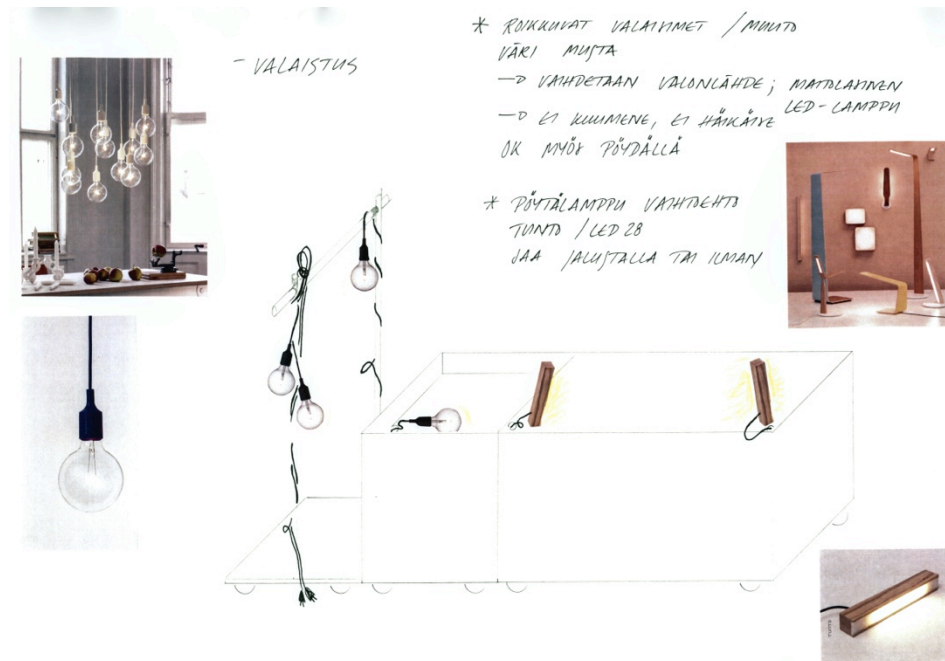 - VALAISTUS
* ROIKKUVAT VALAISIMET / MUUTO
VÄRI MUSTA
→ VAIHDETAAN VALONLÄHDE; MATALAVIRTAINEN
LED-LAMPPU
→ EI KUUMENE, EI HÄIKÄISE
OK MYÖS PÖYDÄLLÄ
* PÖYTÄLAMPPU VAIHTOEHTO
TUNTO / LED 28
SAA JALUSTALLA TAI ILMAN
TUNTO